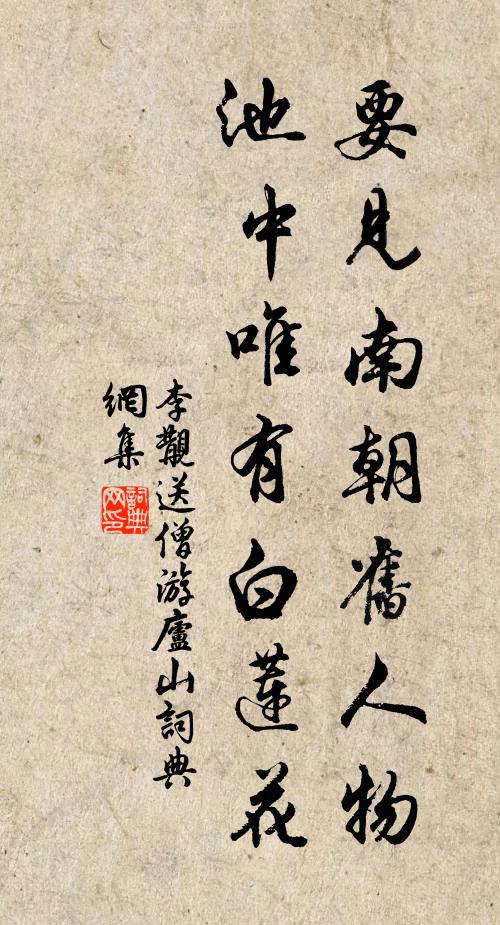 要見南朝舊人物
池中唯有白蓮花
李觀送僧游廬山詞典
網集
詞典
网印